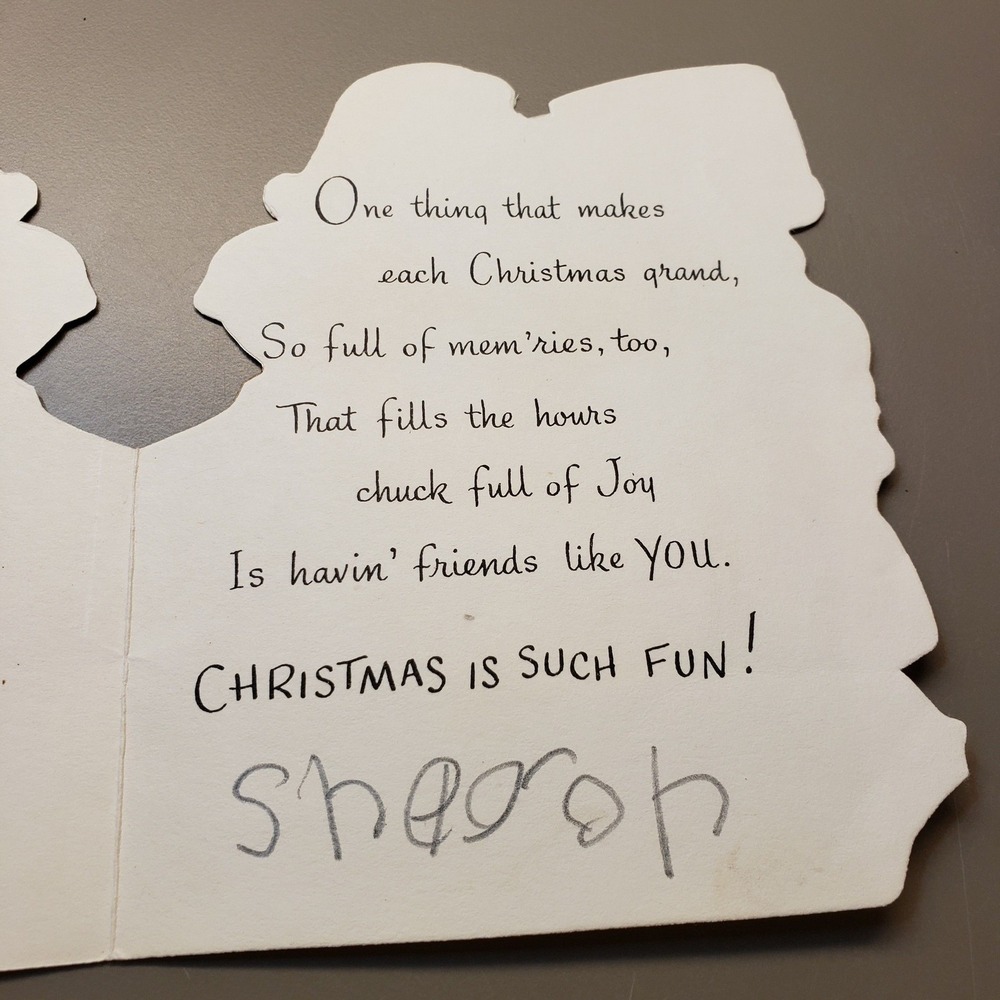 One thing that makes
each Christmas grand,
So full of mem'ries, too,
That fills the hours
chuck full of Joy
Is havin' friends like YOU.
CHRISTMAS IS SUCH FUN!
Sharon